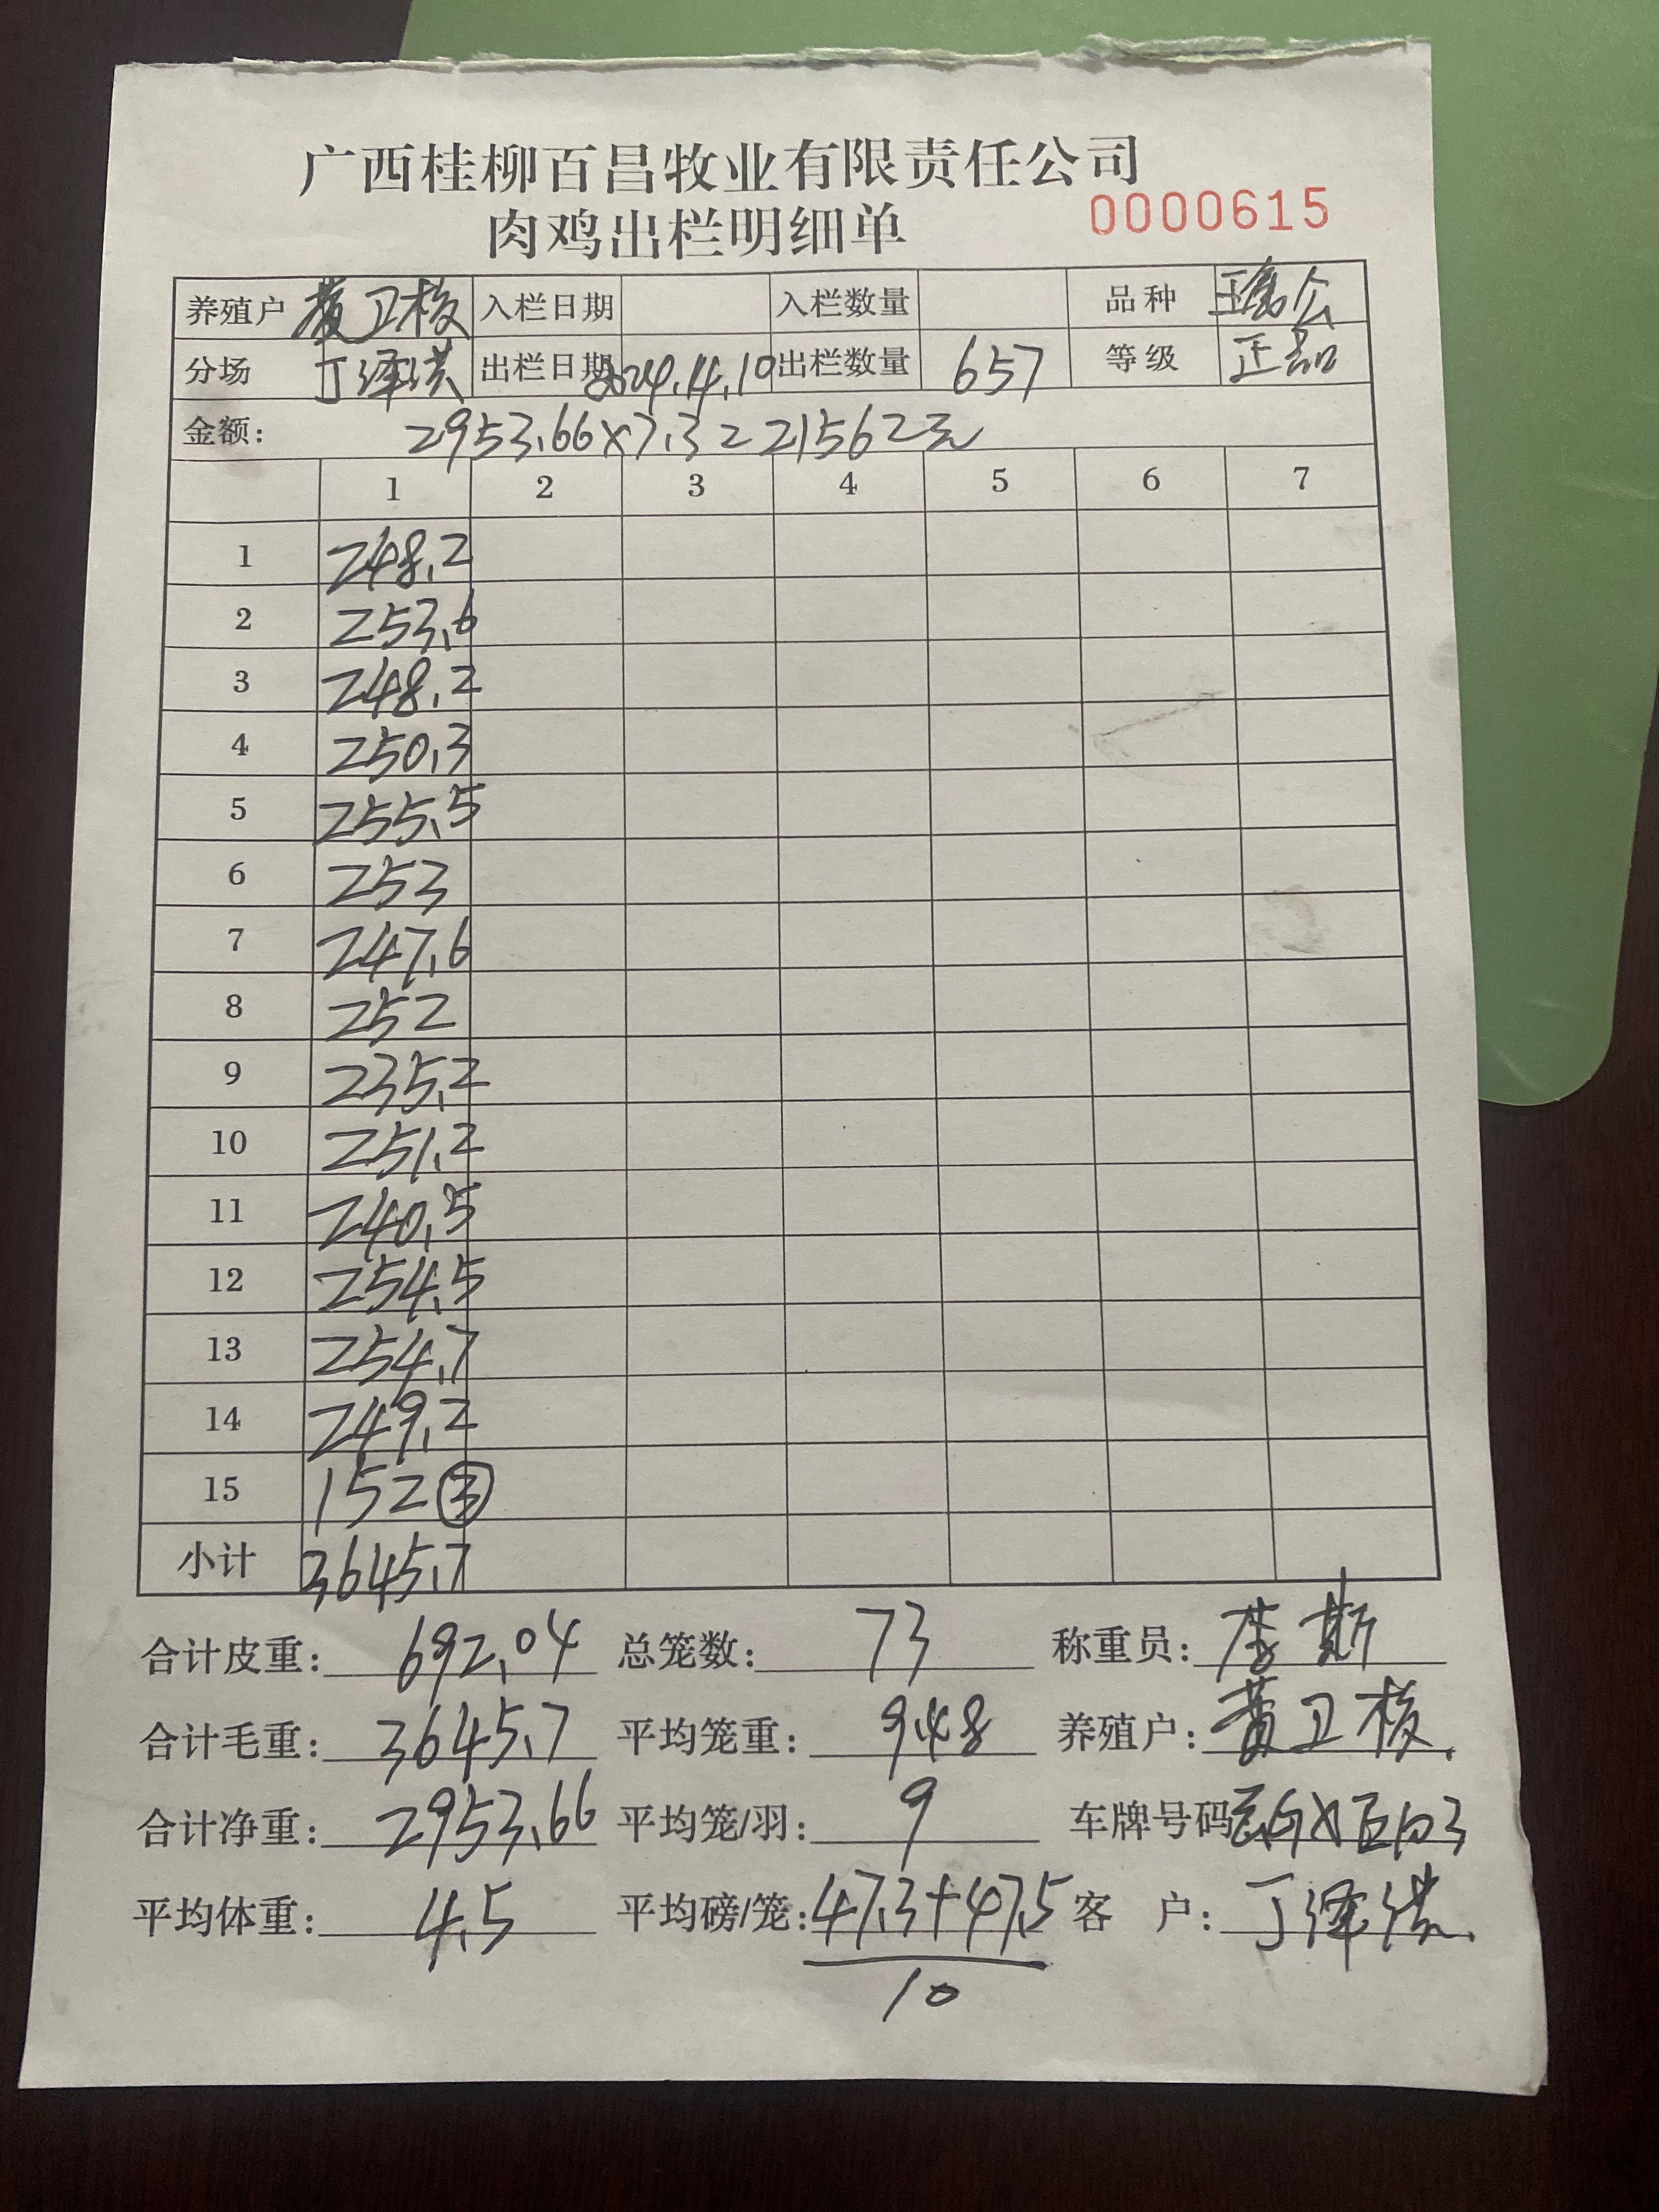 广西桂柳百昌牧业有限责任公司
肉鸡出栏明细单 0000615
养殖户 黄卫核 入栏日期 入栏数量 品种 公
分场 丁泽洪 出栏日期 2024.4.10 出栏数量 657 等级 正品
金额: 2953.66×7.3=21562元
1 2 3 4 5 6 7
1 248.2
2 253.6
3 248.2
4 250.3
5 255.5
6 253
7 247.6
8 252
9 235.2
10 251.2
11 240.5
12 254.5
13 254.7
14 249.2
15 152 ③
小计 3645.7
合计皮重: 692.04 总笼数: 73 称重员: 李斯
合计毛重: 3645.7 平均笼重: 9.48 养殖户: 黄卫核
合计净重: 2953.66 平均笼/羽: 9 车牌号码
平均体重: 4.5 平均磅/笼: 47.3+47.5 客 户: 丁泽洪
10